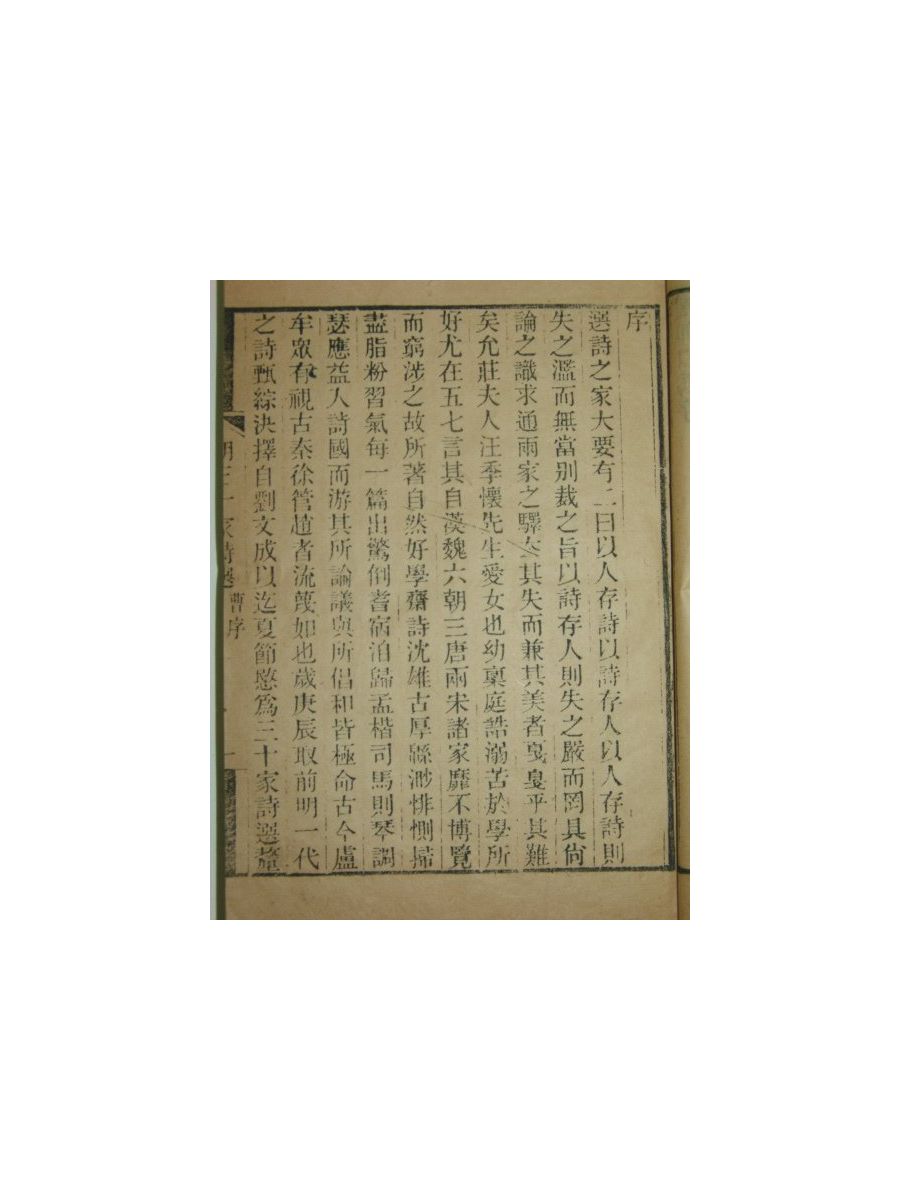 序
選詩之家大要有二曰以人存詩以詩存人以人存詩則
失之濫而無當别裁之旨以詩存人則失之嚴而罔具尙
論之識求通兩家之驛去其失而兼其美者戛戛乎其難
矣允莊夫人汪季懷先生愛女也幼稟庭誥溺苦於學所
好尤在五七言其自漢魏六朝三唐兩宋諸家靡不博覽
而窮涉之故所著自然好學齋詩沈雄古厚緜渺悱惻掃
盡脂粉習氣每一篇出驚倒耆宿洎歸孟楷司馬則琴調
瑟應益入詩國而游其所論議與所倡和皆極命古今盧
牟眾有視古秦徐管趙者流蔑如也歲庚辰取前明一代
之詩甄綜決擇自劉文成以迄夏節愍爲三十家詩選釐
明三十家詩選 曹序 一